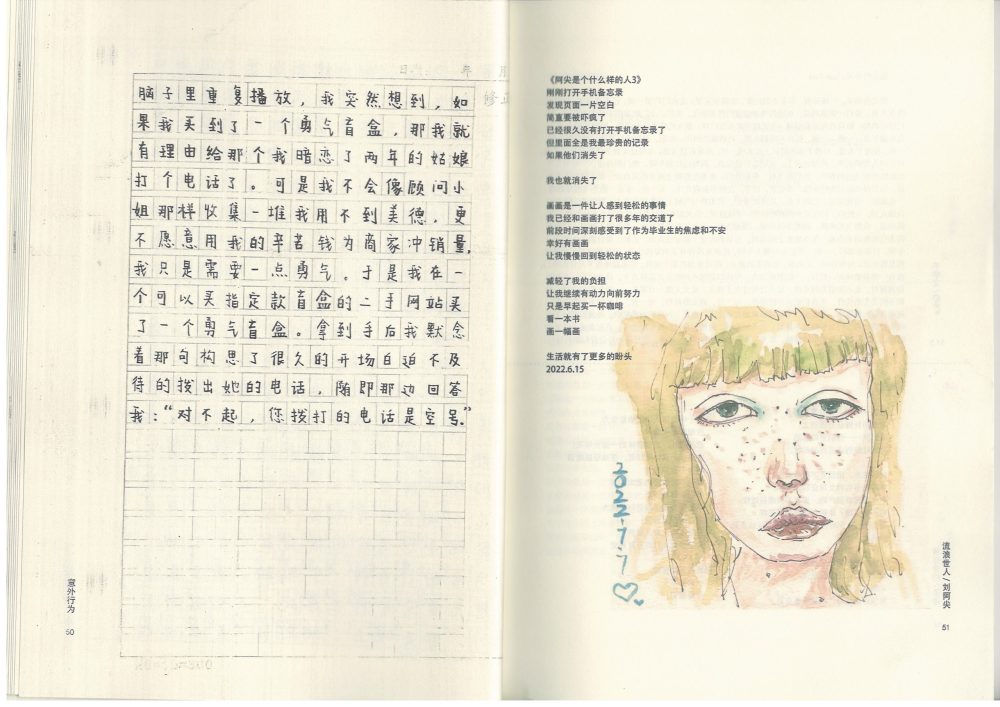 脑子里重复播放，我突然想到，如
果我买到了一个勇气盲盒，那我就
有理由给那个我暗恋了两年的姑娘
打个电话了。可是我不会像顾问小
姐那样收集一堆我用不到美德，更
不愿意用我的辛苦钱为商家冲销量，
我只是需要一点勇气。于是我在一
个可以买指定款盲盒的二手网站买
了一个勇气盲盒。拿到手后我默念
着那句构思了很久的开场白迫不及
待的拨出她的电话，随即那边回答
我：“对不起，您拨打的电话是空号。”
意外行为
50
《阿尖是个什么样的人3》
刚刚打开手机备忘录
发现页面一片空白
简直要被吓疯了
已经很久没有打开手机备忘录了
但里面全是我最珍贵的记录
如果他们消失了
我也就消失了
画画是一件让人感到轻松的事情
我已经和画画打了很多年的交道了
前段时间深刻感受到了作为毕业生的焦虑和不安
幸好有画画
让我慢慢回到轻松的状态
减轻了我的负担
让我继续有动力向前努力
只是早起买一杯咖啡
看一本书
画一幅画
生活就有了更多的盼头
2022.6.15
流浪世人/刘阿尖
51